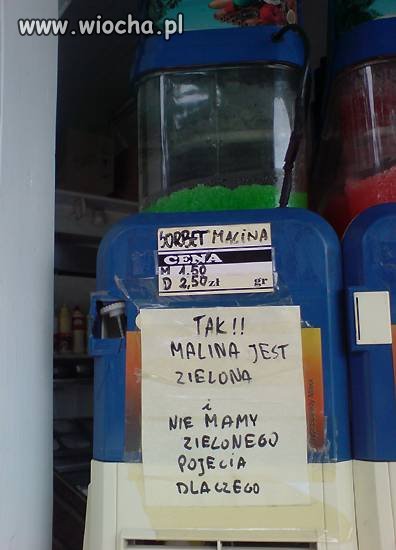 www.wiocha.pl
SORBET MALINA
CENA
M 1.50
D 2,50 zł gr
TAK!!
MALINA JEST
ZIELONA
i
NIE MAMY
ZIELONEGO
POJĘCIA
DLACZEGO